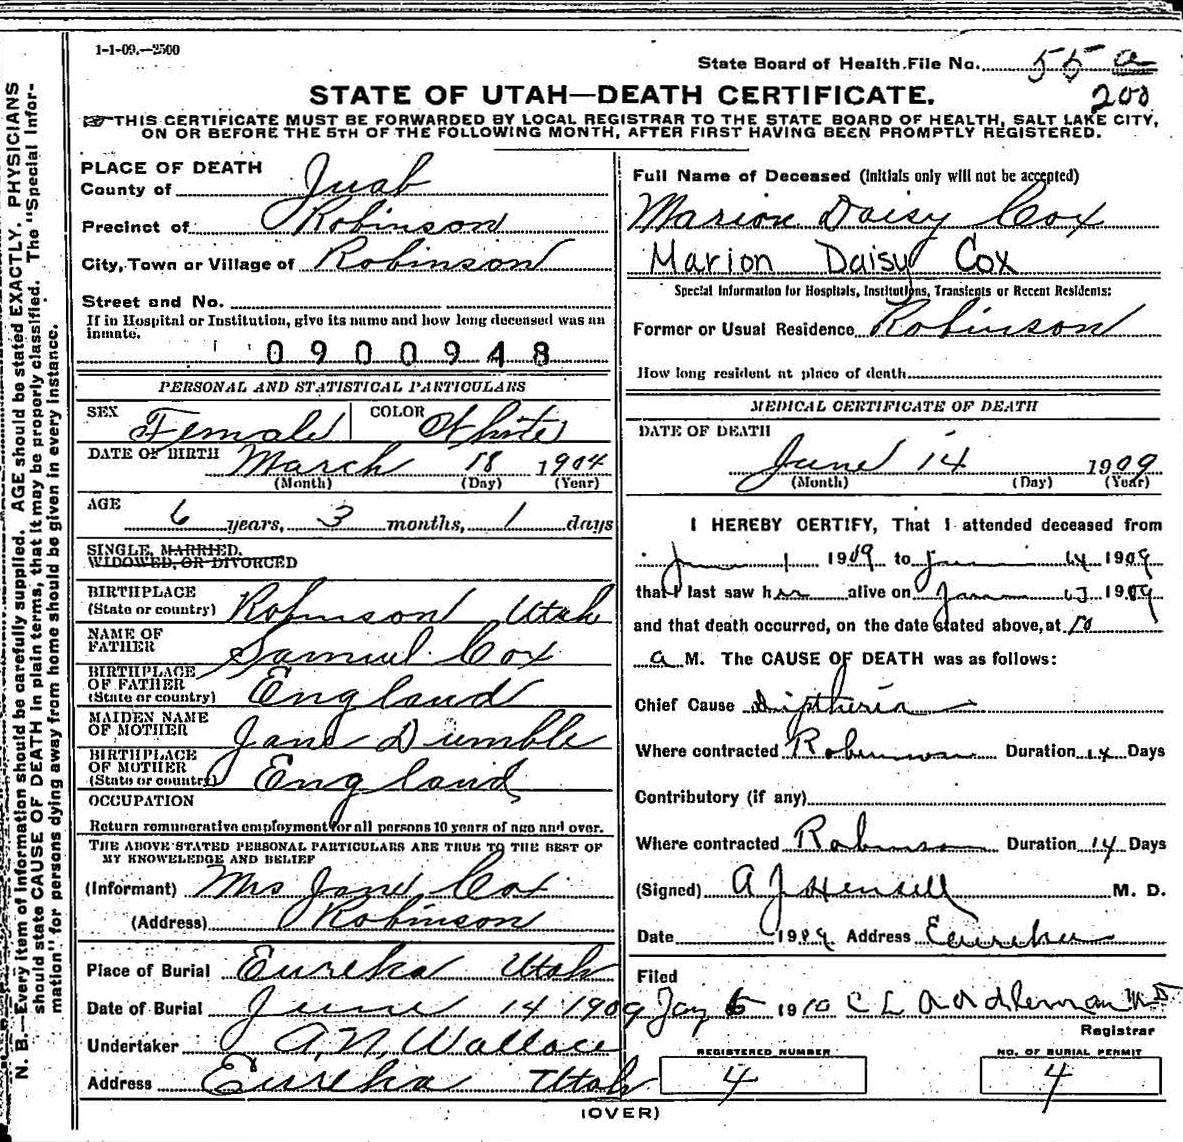 1-1-09.—2500
State Board of Health File No. 55 a
200
STATE OF UTAH—DEATH CERTIFICATE.
☞THIS CERTIFICATE MUST BE FORWARDED BY LOCAL REGISTRAR TO THE STATE BOARD OF HEALTH, SALT LAKE CITY,
ON OR BEFORE THE 5TH OF THE FOLLOWING MONTH, AFTER FIRST HAVING BEEN PROMPTLY REGISTERED.
N. B.—Every item of information should be carefully supplied. AGE should be stated EXACTLY. PHYSICIANS
should state CAUSE OF DEATH in plain terms, that it may be properly classified. The "Special Infor-
mation" for persons dying away from home should be given in every instance.
PLACE OF DEATH
County of Juab
Precinct of Robinson
City, Town or Village of Robinson
Street and No.
If in Hospital or Institution, give its name and how long deceased was an
inmate.
0900948
PERSONAL AND STATISTICAL PARTICULARS
SEX Female COLOR White
DATE OF BIRTH March 18 1904
(Month) (Day) (Year)
AGE 6 years, 3 months, 1 days
SINGLE, MARRIED,
WIDOWED, OR DIVORCED
BIRTHPLACE
(State or country) Robinson Utah
NAME OF
FATHER Samuel Cox
BIRTHPLACE
OF FATHER
(State or country) England
MAIDEN NAME
OF MOTHER Jane Dumble
BIRTHPLACE
OF MOTHER
(State or country) England
OCCUPATION
Return remunerative employment for all persons 10 years of age and over.
THE ABOVE STATED PERSONAL PARTICULARS ARE TRUE TO THE BEST OF
MY KNOWLEDGE AND BELIEF
(Informant) Mrs Jane Cox
(Address) Robinson
Place of Burial Eureka Utah
Date of Burial June 14 1909
Undertaker A. N. Wallace
Address Eureka Utah
Full Name of Deceased (Initials only will not be accepted)
Marion Daisy Cox
Marion Daisy Cox
Special Information for Hospitals, Institutions, Transients or Recent Residents:
Former or Usual Residence Robinson
How long resident at place of death
MEDICAL CERTIFICATE OF DEATH
DATE OF DEATH
June 14 1909
(Month) (Day) (Year)
I HEREBY CERTIFY, That I attended deceased from
June 1 1909 to June 14 1909
that I last saw her alive on June 13 1909
and that death occurred, on the date stated above, at 10
a M. The CAUSE OF DEATH was as follows:
Chief Cause Diptheria
Where contracted Robinson Duration 14 Days
Contributory (if any)
Where contracted Robinson Duration 14 Days
(Signed) A J Hensell M. D.
Date 1909 Address Eureka
Filed
Jan 1910 C L Addleman MD
Registrar
REGISTERED NUMBER
4
NO. OF BURIAL PERMIT
4
(OVER)